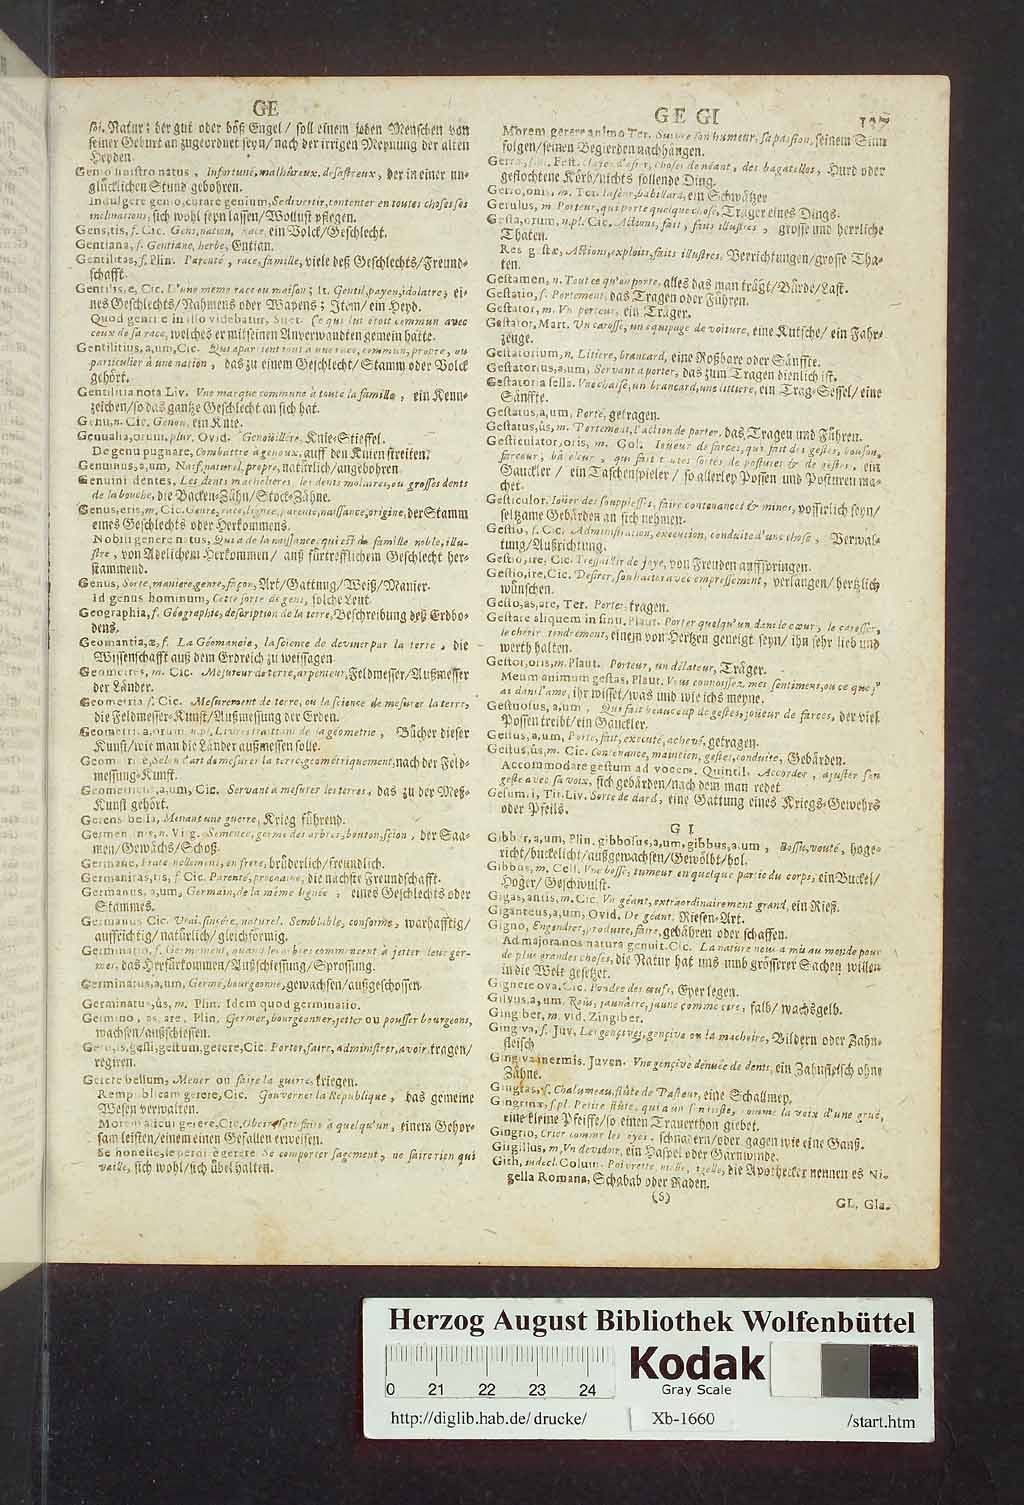 GE
soi. Natur; der gut oder böß Engel/ soll einem jeden Menschen von
seiner Geburt an zugeordnet seyn/ nach der irrigen Meynung der alten
Heyden.
Genio sinistro natus, Infortuné, malhéureux. desastreux, der in einer un-
glücklichen Stund gebohren.
Indulgere genio, curare genium, Se divertir, contenter en toutes choses ses
inclinations, sich wohl seyn lassen/ Wollust pflegen.
Gens, tis, f. Cic. Gens, nation, race, ein Volck/ Geschlecht.
Gentiana, f. Gentiane, herbe, Entian.
Gentilitas, f. Plin. Parenté, race, famille, viele deß Geschlechts/ Freund-
schafft.
Gentilis, e, Cic. D'une meme race ou maison; It. Gentil, payen, idolatre; ei-
nes Geschlechts/ Nahmens oder Wapens; Item/ ein Heyd.
Quod gentile in illo videbatur, Suet. Ce qui lui étoit commun avec
ceux de sa race, welches er mit seinen Anverwandten gemein hatte.
Gentilitius, a, um, Cic. Qui apartient tout à une race, commun, propre, ou
particulier à une nation, das zu einem Geschlecht/ Stamm oder Volck
gehört.
Gentilitia nota Liv. Vne marque commune à toute la famille, ein Kenn-
zeichen/ so das gantze Geschlecht an sich hat.
Genu, n. Cic. Genou, ein Knie.
Genualia, orum, plur. Ovid. Genouillere, Knie-Stieffel.
De genu pugnare, Combattre à genoux, auff den Knien streiten.
Genuinus, a, um, Naif, naturel, propre, natürlich/ angebohren
Genuini dentes, Les dents machelieres, les dents molaires, ou grosses dents
de la bouche, die Backen-Zähn/ Stock-Zähne.
Genus, eris, n, Cic. Genre, race, lignée, parenté, naissance, origine, der Stamm
eines Geschlechts oder Herkommens.
Nobili genere natus, Qui a de la naissance, qui est de famille noble, illu-
stre, von Adelichem Herkommen/ auß fürtrefflichem Geschlecht her-
stammend.
Genus, Sorte, maniere, genre, façon, Art/ Gattung/ Weiß/ Manier.
Id genus hominum, Cette sorte de gens, solche Leut.
Geographia, f. Géographie, description de la terre, Beschreibung deß Erdbo-
dens.
Geomantia, æ, f. La Géomancie, la science de deviner par la terre, die
Wissenschafft auß dem Erdreich zu weissagen
Geometres, m. Cic. Mesureur de terre, arpenteur, Feldmesser/ Außmesser
der Länder.
Geometria f. Cic. Mesurement de terre, ou la science de mesurer la terre,
die Feldmesser-Kunst/ Außmessung der Erden.
Geometrica, orum, n. pl. Livres traittans de la géometrie, Bücher dieser
Kunst/ wie man die Länder außmessen solle.
Selon l'art de mesurer la terre, géometriquement, nach der Feld-
messung-Kunst.
Geometricus, a, um, Cic. Servant à mesurer les terres, das zu der Meß-
Kunst gehört.
Gerens bella, Menant une guerre, Krieg führend.
Germen, inis, n. Virg. Semence, germe des arbres, bouton, scion, der Saa-
men/ Gewächs/ Schoß.
Germane, Fraternellement, en frere, brüderlich/ freundlich.
Germanitas, tis, f Cic. Parenté, prochaine, die nächste Freundschafft.
Germanus, a, um, Germain, de la même lignée, eines Geschlechts oder
Stammes.
Germanus Cic. Vrai, sincére, naturel. Semblable, conforme, warhafftig/
auffrichtig/ natürlich/ gleichförmig.
Germinatio, f. Germement, quand les arbres commencent à jetter leur ger-
mes, das Herfürkommen/ Außschiessung/ Sprossung.
Germinatus, a, um, Germé, bourgeonné, gewachsen/ außgeschossen.
Germinatus, ûs, m. Plin. Idem quod germinatio.
Germino, as, are, Plin. Germer, bourgeonner, jetter ou pousser bourgeons,
wachsen/ außschiessen.
Gero, is, gessi, gestum, gerere, Cic. Porter, faire, administrer, avoir, tragen/
regiren.
Gerere bellum, Mener ou faire la guerre, kriegen.
Rempublicam gerere, Cic. Gouverner la République, das gemeine
Wesen verwalten.
Morem alicui gerere, Cic. Obeir, satisfaire à quelqu'un, einem Gehor-
sam leisten/ einem einen Gefallen erweisen.
Se honeste, se perdite gerere Se comporter sagement, ne faire rien qui
vaille, sich wohl/ sich übel halten.
GE GI
Morem gerere animo Ter. Suivre son humeur, sa passion, seinem Sinn
folgen/ seinen Begierden nachhangen.
Gerra, Fest. Claie d'osier, choses de néant, des bagatelles, Hurd oder
geflochtene Körb/ nichts sollende Ding.
Gerro, onis, m. Ter. Jaseur, babillard, ein Schwätzer
Gerulus, m. Porteur, qui porte quelque chose, Träger eines Dings.
Gesta, orum, n. pl. Cic. Actions, fait, faits illustres, grosse und herrliche
Thaten.
Res gestæ, Actions, exploits, faits illustres, Verrichtungen/ grosse Tha-
ten.
Gestamen, n. Tout ce qu'on porte, alles das man trägt/ Bürde/ Last.
Gestatio, f. Portement, das Tragen oder Führen.
Gestator, m. Vn porteur, ein Träger.
Gestator, Mart. Vn carosse, un equipage de voiture, eine Kutsche/ ein Fahr-
zeuge.
Gestatorium, n, Litiere, brancard, eine Roßbare oder Sänffte.
Gestatorius, a, um, Servant à porter, das zum Tragen dienlich ist.
Gestatoria sella. Vne chaise, un brancard, une littiere, ein Trag-Sessel/ eine
Sänffte.
Gestatus, a, um, Porté, getragen.
Gestatus, ûs, m. Portement, l'action de porter, das Tragen und Führen.
Gesticulator, oris, m. Gol. Joueur de farces, qui fait des gestes, boufon,
farceur, bâteleur, qui fait toutes sortes de postures & de gestes, ein
Gauckler/ ein Taschenspieler/ so allerley Possen und Posturen ma-
chet.
Gesticulor. Joüer des souplesses, faire contenances & mines, possirlich seyn/
seltzame Gebärden an sich nehmen.
Gestio, f. Cic. Administration, execution, conduite d'une chose, Verwal-
tung/ Außrichtung.
Gestio, ire, Cic. Tressaillir de joye, von Freuden auffspringen.
Gestio, ire, Cic. Desirer, souhaiter avec empressement, verlangen/ hertzlich
wünschen.
Gesto, as, are, Ter. Porter, tragen.
Gestare aliquem in sinu. Plaut. Porter quelqu'un dans le cœur, le caresser,
le chérir tendrement, einem von Hertzen geneigt seyn/ ihn sehr lieb und
werth halten.
Gestor, oris, m. Plaut. Porteur, un délateur, Träger.
Meum animum gestas, Plaut. Vous connoissez mes sentimens, ou ce que j'
ai dans l'ame, ihr wisset/ was und wie ichs meyne.
Gestuosus, a, um, Qui fait beaucoup de gestes, joüeur de farces, der viel
Possen treibt/ ein Gauckler.
Gestus, a, um, Porté, fait, executé, achevé, getragen.
Gestus, ûs, m. Cic. Contenance, maintien, gestes, conduite, Gebärden.
Accommodare gestum ad vocem. Quintil. Accorder, ajuster son
geste avec sa voix, sich gebärden/ nach dem man redet
Gesum. i, Tit. Liv. Sorte de dard, eine Gattung eines Kriegs-Gewehrs
oder Pfeils.
G I
Gibber, a, um, Plin. gibbosus, a, um, gibbus, a, um, Bossu, vouté, hoge-
richt/ buckelicht/ außgewachsen/ Gewölbt/ hol.
Gibbus, m. Cell. Vne bosse, tumeur en quelque partie du corps, ein Buckel/
Hoger/ Geschwulst.
Gigas, antis, m. Cic. Vn géant, extraordinairement grand, ein Rieß.
Giganteus, a, um, Ovid. De géant, Riesen-Art.
Gigno, Engendrer, produire, faire, gebähren oder schaffen.
Ad majora nos natura genuit. Cic. La nature nous a mis au monde pour
de plus grandes choses, die Natur hat uns umb grösserer Sachen willen
in die Welt gesetzet.
Gignere ova, Cic. Pondre des œufs, Eyer legen.
Gilvus, a, um. Roüs, jaunâtre, jaune comme cire, falb/ wachsgelb.
Gingiber, m. vid. Zingiber.
Gingiva, f. Juv, Les gengives, gencive ou la machoire, Bildern oder Zahn-
fleisch
Gingiva inermis. Juven. Vne gencive dénuée de dents, ein Zahnfleisch ohne
Zähne.
Gingras, f. Chalumeau, flûte de Pasteur, eine Schallmey.
Gingrinæ, f. pl. Petite flûte, qui a un son triste, comme la voix d'une gruë,
eine kleine Pfeiffe/ so einen Trauerthon giebet.
Gingrio, Crier comme les oyes, schnadern/ oder gagen wie eine Ganß.
Girgillus, m, Vn devidoir, ein Haspel oder Garnwinde.
Gith, indecl. Colum. Poivrette, nielle, die Apothecker nennen es Ni-
gella Romana, Schabab oder Raden.
(S)
GL, Gla-
Herzog August Bibliothek Wolfenbüttel
0 21 22 23 24
Kodak
Gray Scale
http://diglib.hab.de/drucke/ Xb-1660 /start.htm